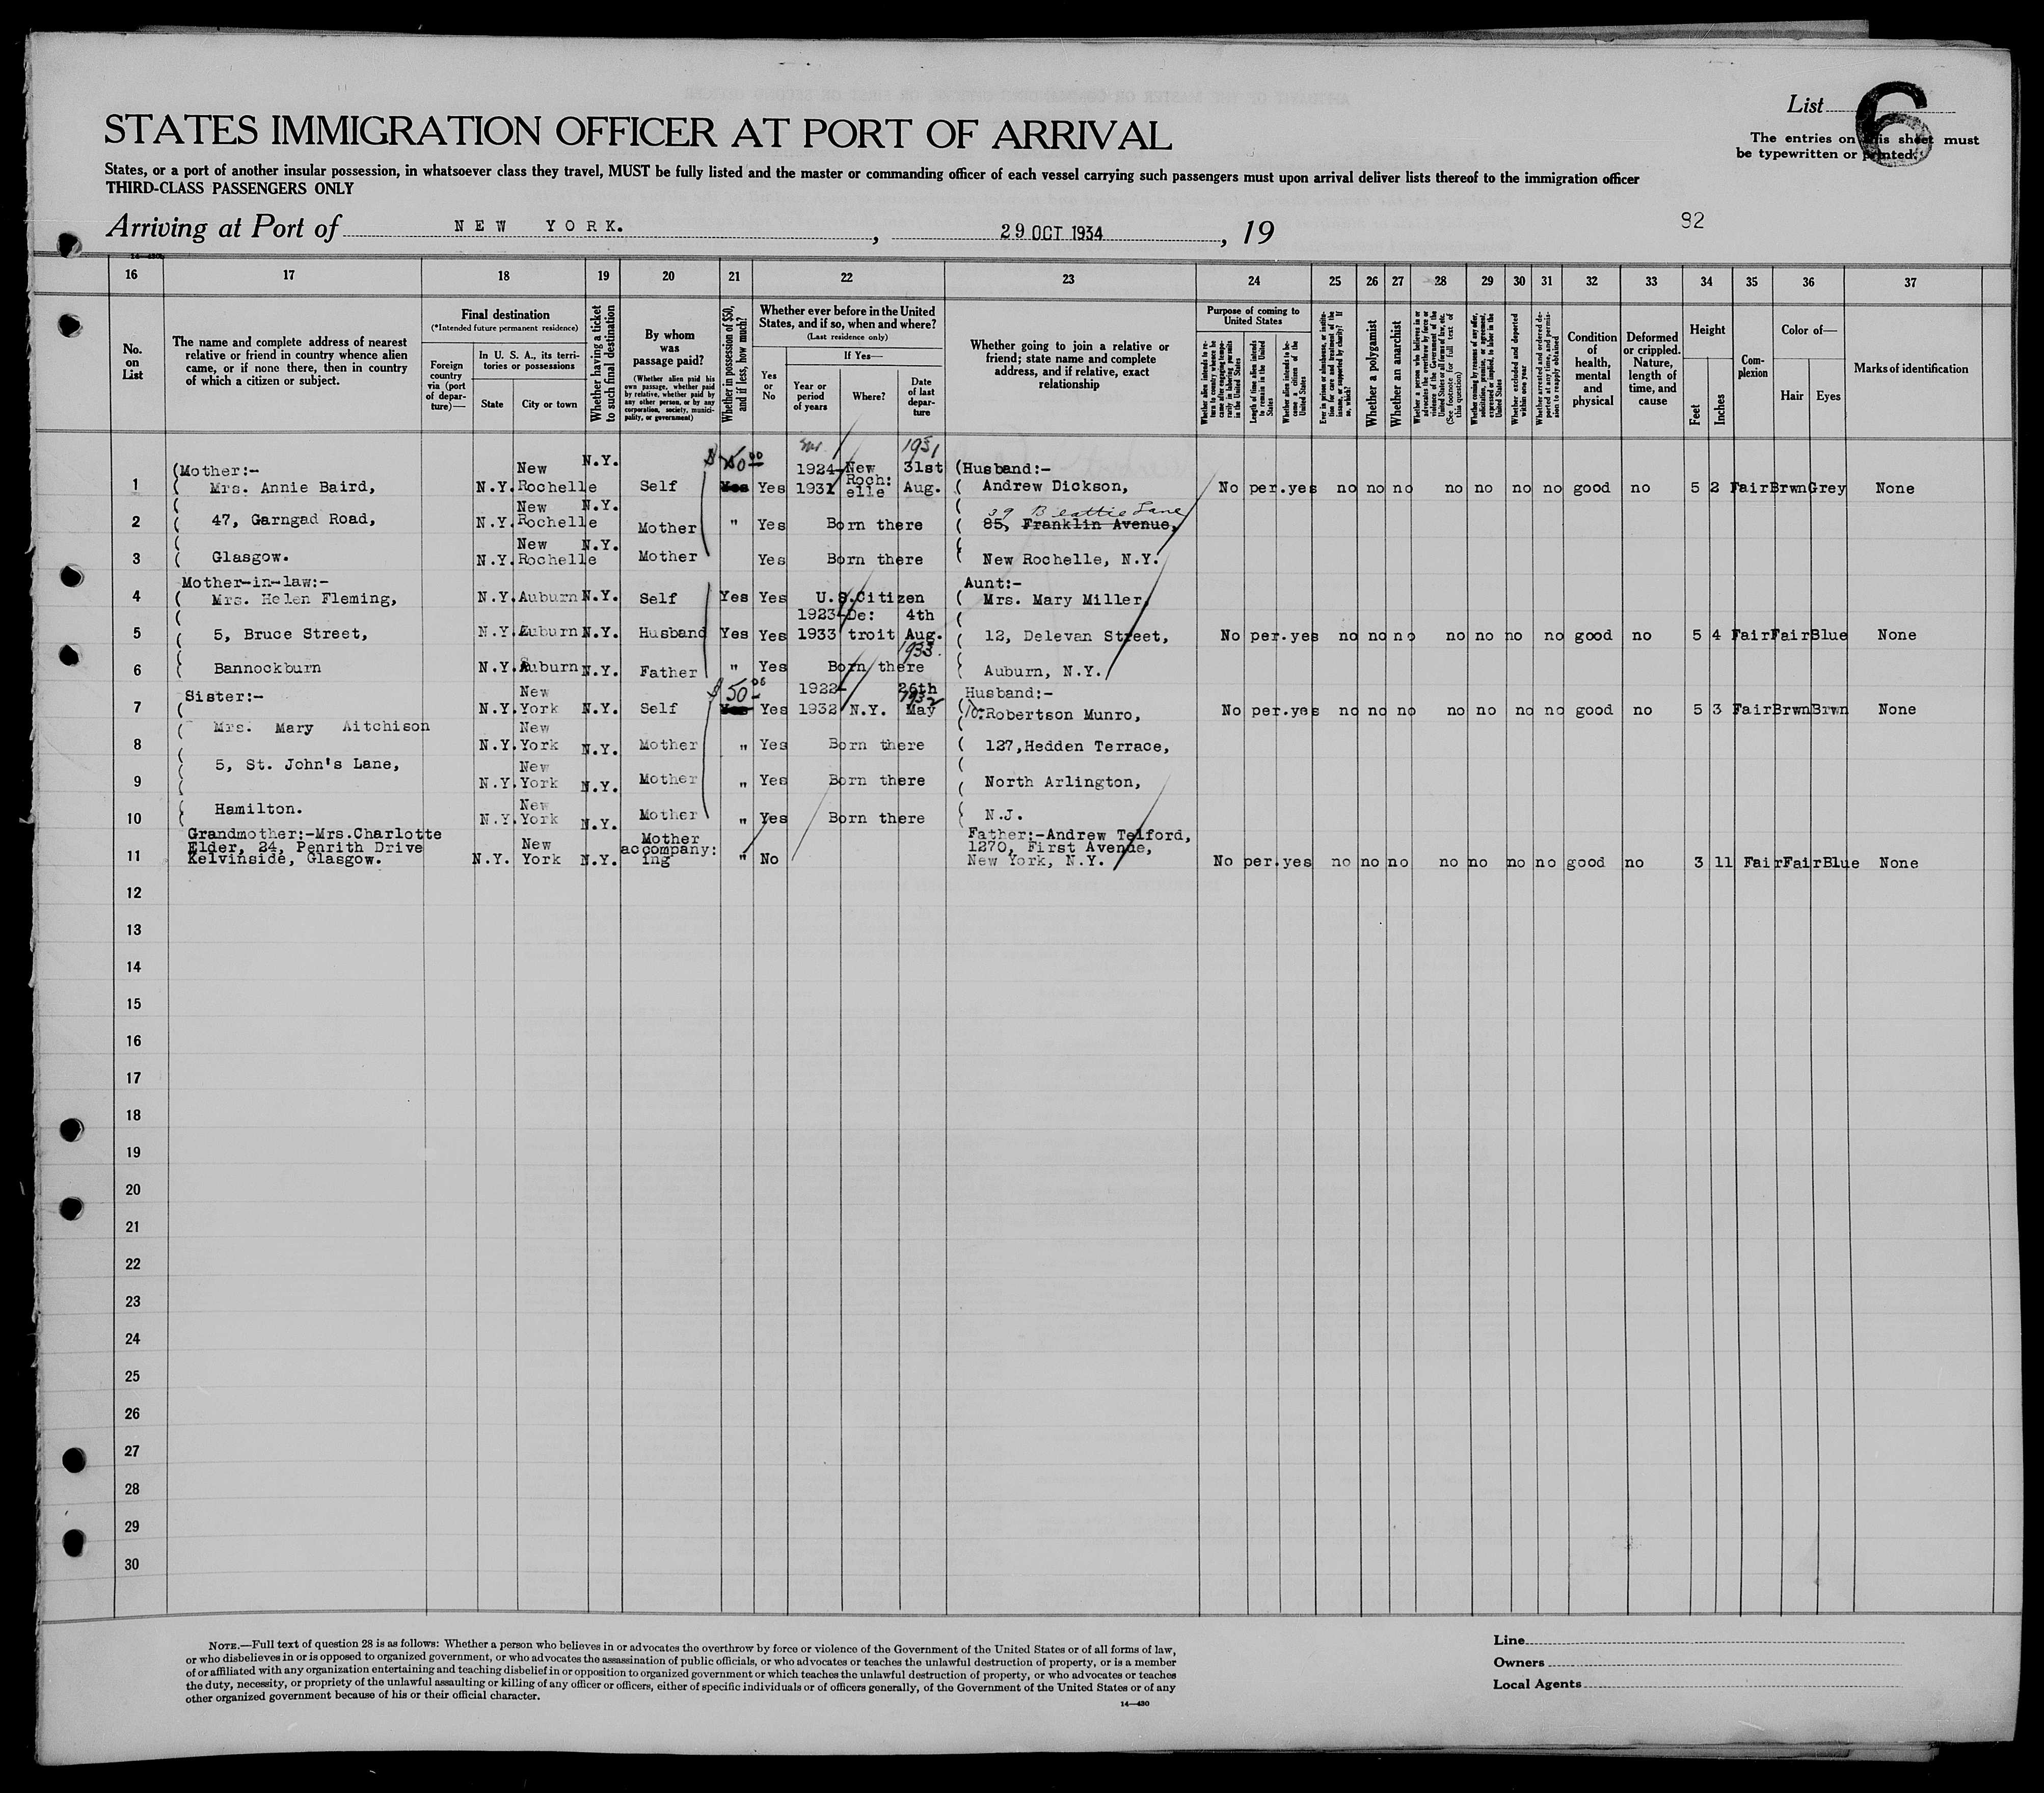 List 6
STATES IMMIGRATION OFFICER AT PORT OF ARRIVAL
The entries on this sheet must
be typewritten or printed.
States, or a port of another insular possession, in whatsoever class they travel, MUST be fully listed and the master or commanding officer of each vessel carrying such passengers must upon arrival deliver lists thereof to the immigration officer
THIRD-CLASS PASSENGERS ONLY
Arriving at Port of NEW YORK. , 29 OCT 1934 , 19
82
16 17 18 19 20 21 22 23 24 25 26 27 28 29 30 31 32 33 34 35 36 37
No. on List
The name and complete address of nearest relative or friend in country whence alien came, or if none there, then in country of which a citizen or subject.
Final destination
(*Intended future permanent residence)
Foreign country via (port of departure)—
In U. S. A., its territories or possessions
State
City or town
Whether having a ticket to such final destination
By whom was passage paid?
(Whether alien paid his own passage, whether paid by relative, whether paid by any other person, or by any corporation, society, municipality, or government)
Whether in possession of $50, and if less, how much?
Whether ever before in the United States, and if so, when and where?
(Last residence only)
Yes or No
If Yes—
Year or period of years
Where?
Date of last departure
Whether going to join a relative or friend; state name and complete address, and if relative, exact relationship
Purpose of coming to United States
Whether alien intends to return to country whence he came after engaging temporarily in laboring pursuits in the United States
Length of time alien intends to remain in the United States
Whether alien intends to become a citizen of the United States
Ever in prison or almshouse, or institution for care and treatment of the insane, or supported by charity? If so, which?
Whether a polygamist
Whether an anarchist
Whether a person who believes in or advocates the overthrow by force or violence of the Government of the United States or all forms of law, etc. (See footnote for full text of this question)
Whether coming by reason of any offer, solicitation, promise, or agreement, expressed or implied, to labor in the United States
Whether excluded and deported within one year
Whether arrested and ordered deported at any time, and permission to reapply obtained
Condition of health, mental and physical
Deformed or crippled. Nature, length of time, and cause
Height
Feet
Inches
Complexion
Color of—
Hair
Eyes
Marks of identification
1 (Mother:- Mrs. Annie Baird, N.Y. New Rochelle N.Y. Self $50.00 Yes Yes 1924- 1931 New Roch: elle 1931 31st Aug. (Husband:- Andrew Dickson, No per. yes no no no no no no no good no 5 2 Fair Brwn Grey None
2 47, Garngad Road, N.Y. New Rochelle N.Y. Mother " Yes Born there 29 Beattie Lane 85, Franklin Avenue,
3 Glasgow. N.Y. New Rochelle N.Y. Mother Yes Born there New Rochelle, N.Y.
4 Mother-in-law:- Mrs. Helen Fleming, N.Y. Auburn N.Y. Self Yes Yes U.S.Citizen Aunt:- Mrs. Mary Miller,
5 5, Bruce Street, N.Y. Auburn N.Y. Husband Yes Yes 1923- 1933 De: troit 4th Aug. 1933. 12, Delevan Street, No per. yes no no no no no no no good no 5 4 Fair Fair Blue None
6 Bannockburn N.Y. Auburn N.Y. Father " Yes Born there Auburn, N.Y.
7 Sister:- N.Y. New York N.Y. Self $50.00 Yes Yes 1922- 1932 N.Y. 26th 1932 May Husband:- Robertson Munro, No per. yes no no no no no no no good no 5 3 Fair Brwn Brwn None
8 Mrs. Mary Aitchison N.Y. New York N.Y. Mother " Yes Born there 127, Hedden Terrace,
9 5, St. John's Lane, N.Y. New York N.Y. Mother " Yes Born there North Arlington,
10 Hamilton. N.Y. New York N.Y. Mother " Yes Born there N.J.
11 Grandmother:-Mrs.Charlotte Elder, 24, Penrith Drive Kelvinside, Glasgow. N.Y. New York N.Y. Mother accompany: ing " No Father:-Andrew Telford, 1270, First Avenue, New York, N.Y. No per. yes no no no no no no no good no 3 11 Fair Fair Blue None
12
13
14
15
16
17
18
19
20
21
22
23
24
25
26
27
28
29
30
NOTE.—Full text of question 28 is as follows: Whether a person who believes in or advocates the overthrow by force or violence of the Government of the United States or of all forms of law,
or who disbelieves in or is opposed to organized government, or who advocates the assassination of public officials, or who advocates or teaches the unlawful destruction of property, or is a member
of or affiliated with any organization entertaining and teaching disbelief in or opposition to organized government or which teaches the unlawful destruction of property, or who advocates or teaches
the duty, necessity, or propriety of the unlawful assaulting or killing of any officer or officers, either of specific individuals or of officers generally, of the Government of the United States or of any
other organized government because of his or their official character.
14—430
Line
Owners
Local Agents